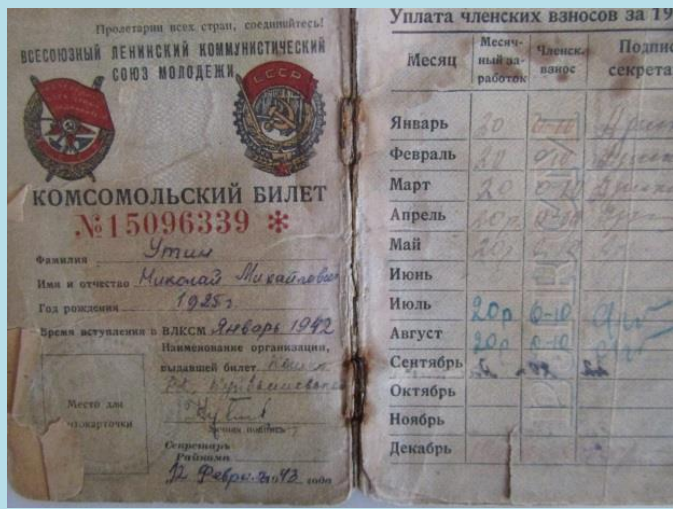 Пролетарии всех стран, соединяйтесь!
ВСЕСОЮЗНЫЙ ЛЕНИНСКИЙ КОММУНИСТИЧЕСКИЙ
СОЮЗ МОЛОДЕЖИ
СССР
КОМСОМОЛЬСКИЙ БИЛЕТ
№15096339 *
Фамилия Утин
Имя и отчество Николай Михайлович
Год рождения 1925г.
Время вступления в ВЛКСМ Январь 1942
Наименование организации,
выдавшей билет
Место для
фотокарточки
Личная подпись
Секретарь
Райкома
12 Февраля 1943 года
Уплата членских взносов за 19
Месяц
Месяч-
ный за-
работок
Членск.
взнос
Подпис
секрета
Январь 20 0-10
Февраль 20 0-10
Март 20 0-10
Апрель 20р. 0-10
Май 20р 0-10
Июнь
Июль 20р 0-10
Август 20р. 0-10
Сентябрь
Октябрь
Ноябрь
Декабрь